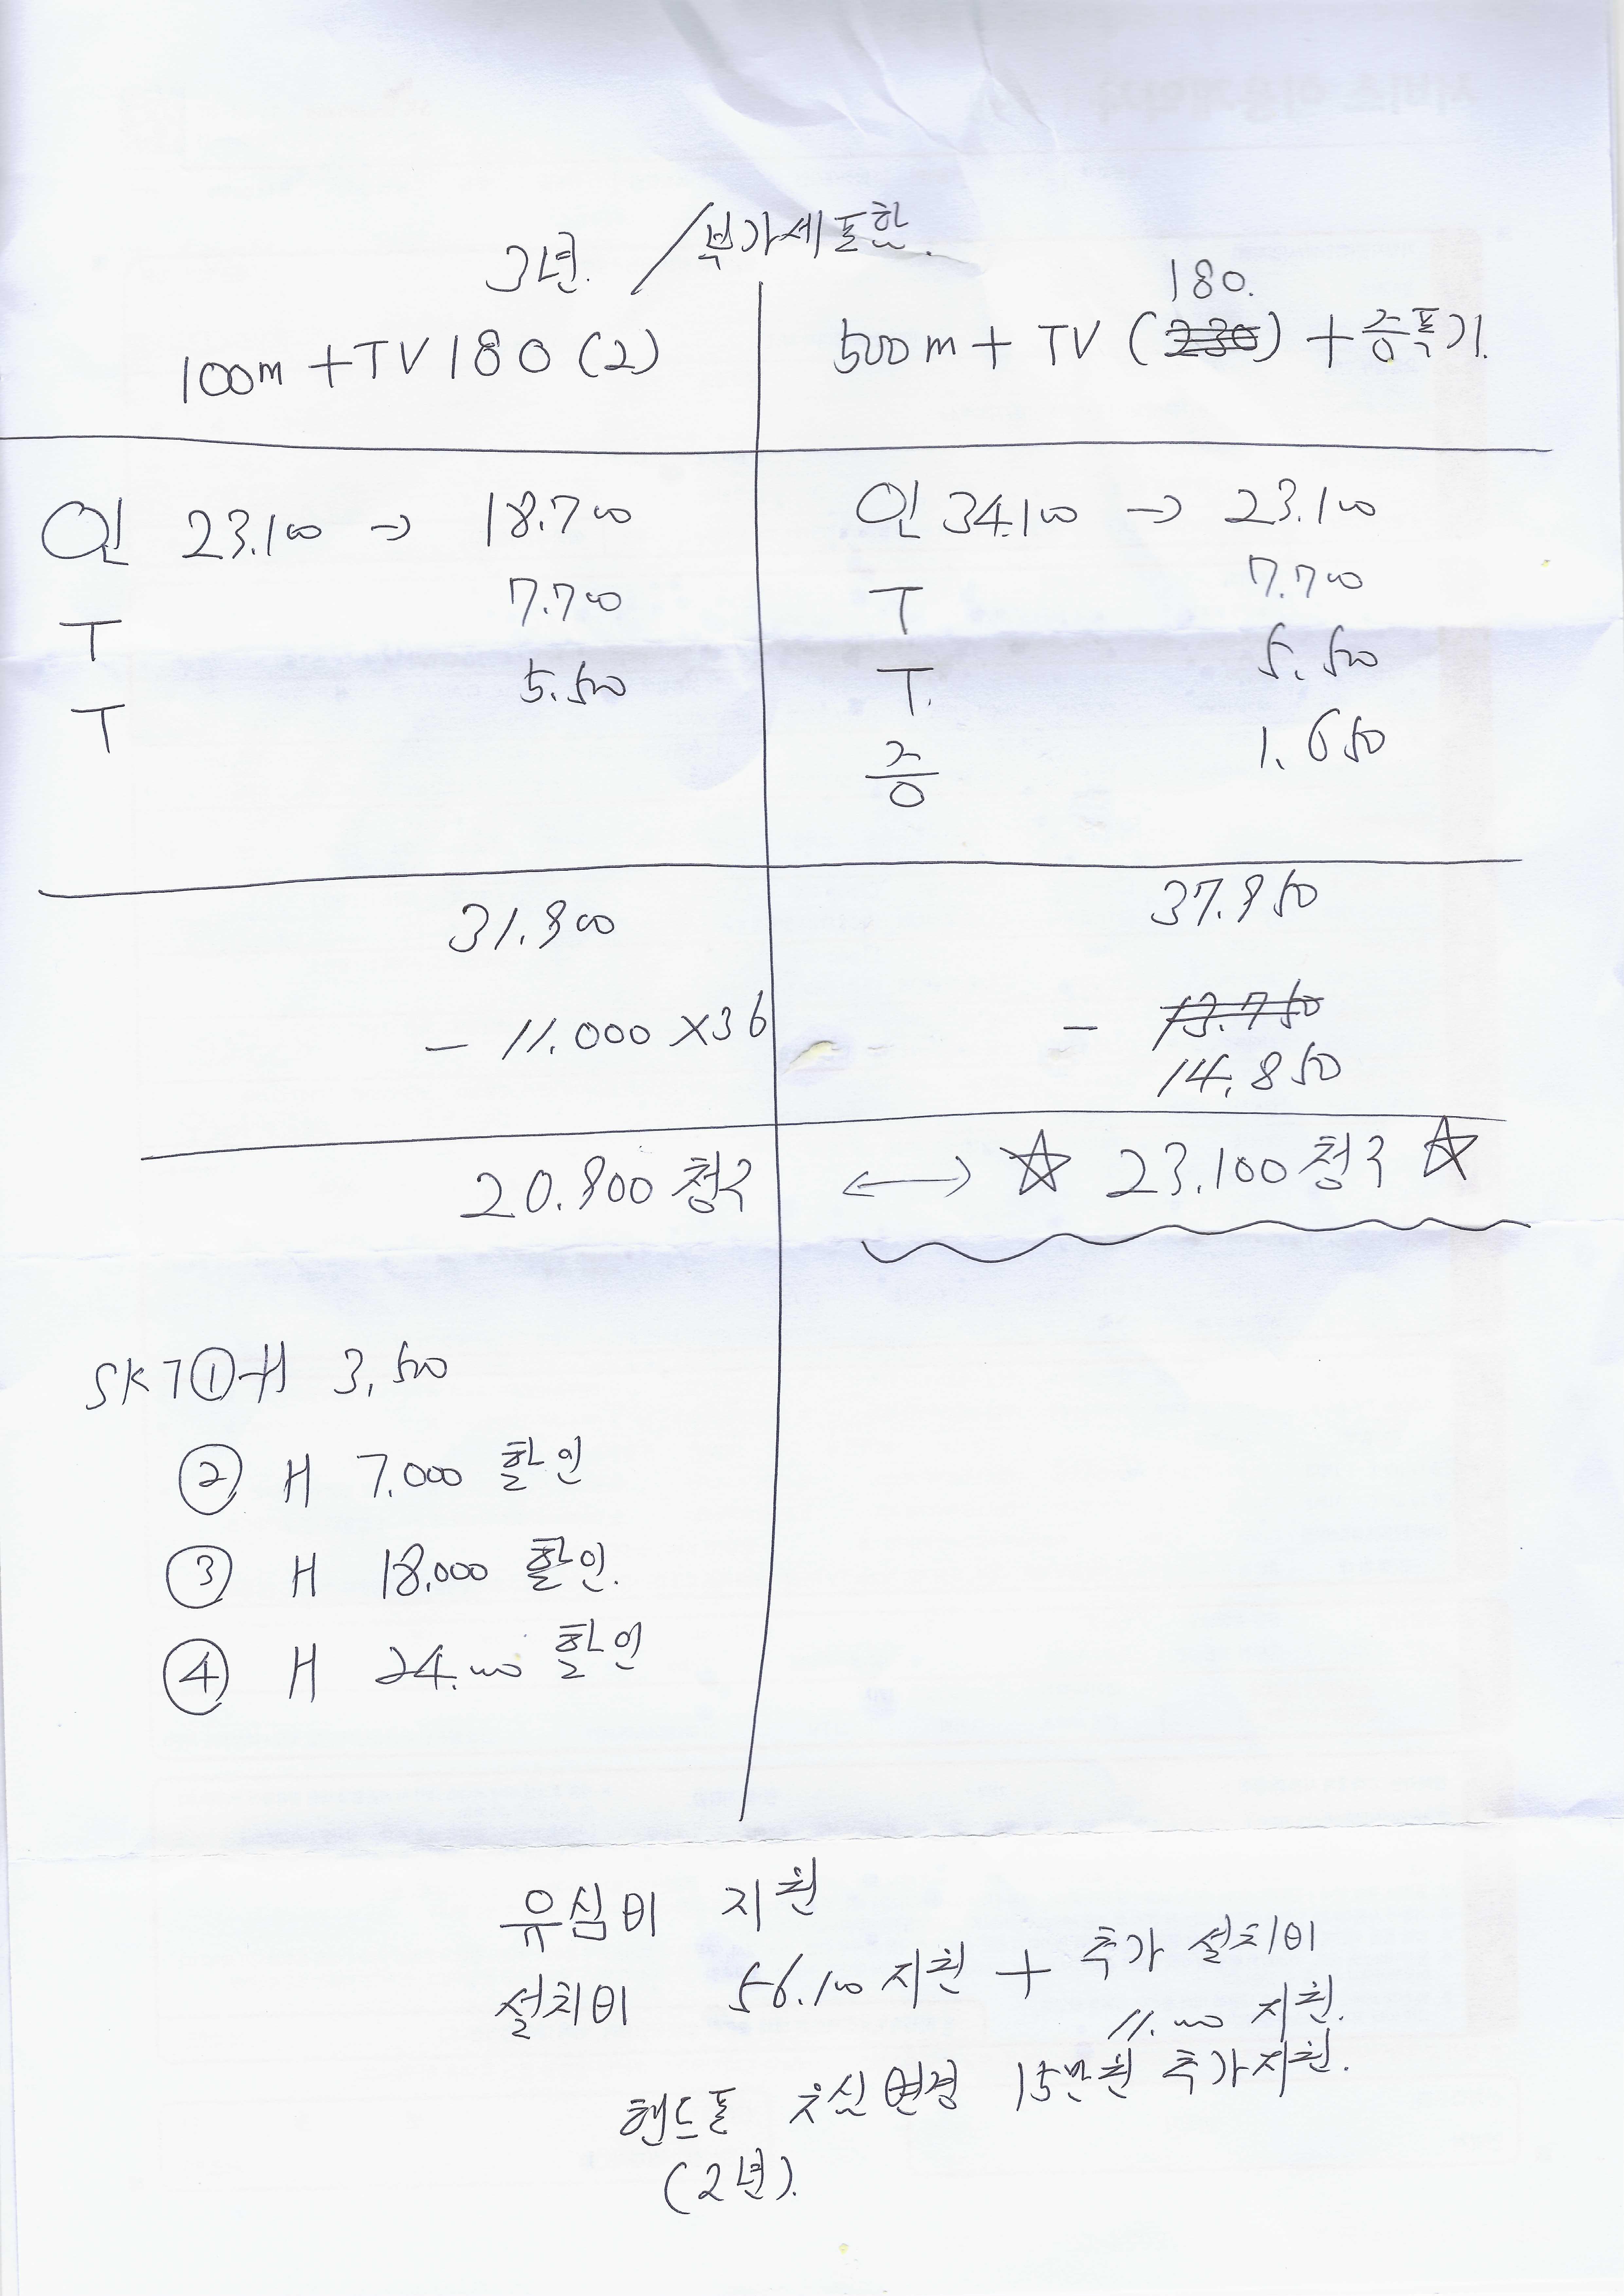 3년. / 부가세포함.
100m + TV 180 (2)
인 23.100 → 18.700
T 7.700
T 5.500
31.900
- 11.000 X36
20.900 청구
180.
500m + TV (230) + 증폭기.
인 34.100 → 23.100
T 7.700
T. 5.500
증 1.650
37.950
- 13.750
14.850
↔ ☆ 23.100 청구 ☆
SKT ①-H 3,500
② H 7.000 할인
③ H 18.000 할인.
④ H 24.000 할인
유심비 지원
설치비 56.100 지원 + 추가 설치비
11.000 지원.
핸드폰 통신변경 15만원 추가지원.
(2년).